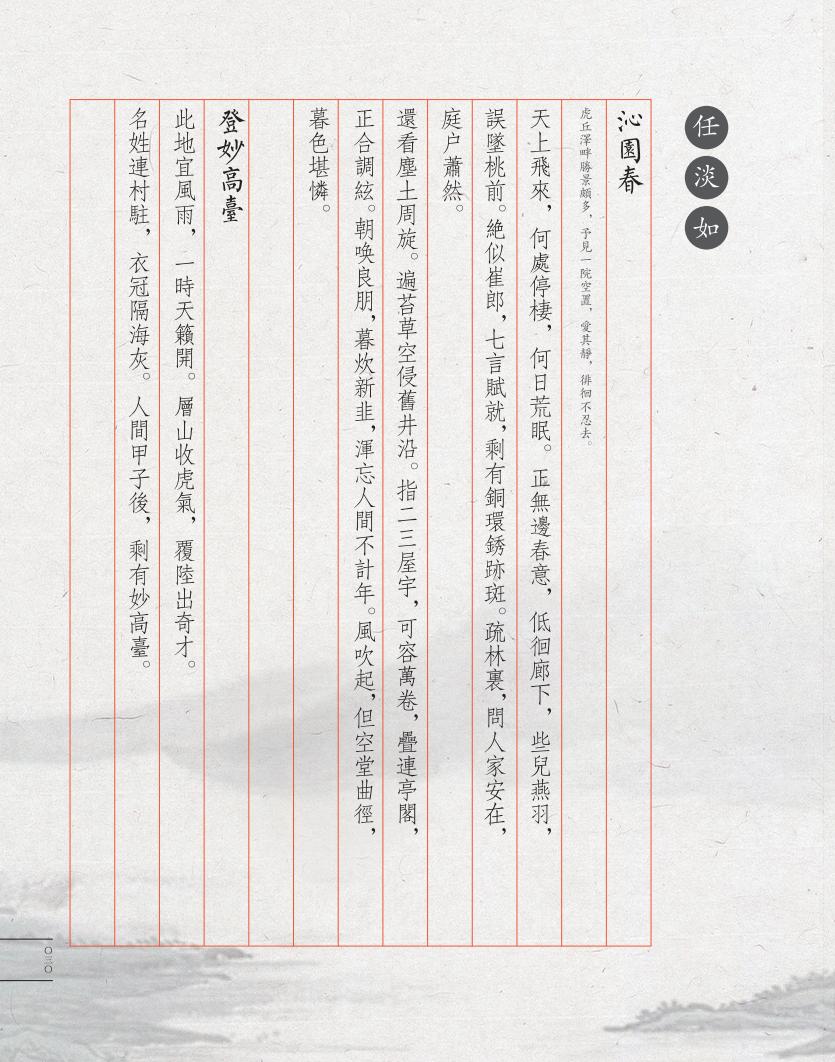 任淡如
沁園春
虎丘澤畔勝景頗多，予見一院空置，愛其靜，徘徊不忍去。
天上飛來，何處停棲，何日荒眠。正無邊春意，低徊廊下，些兒燕羽，
誤墜桃前。絶似崔郎，七言賦就，剩有銅環銹跡斑。疏林裏，問人家安在，
庭户蕭然。
還看塵土周旋。遍苔草空侵舊井沿。指二三屋宇，可容萬卷，疊連亭閣，
正合調絃。朝唤良朋，暮炊新韭，渾忘人間不計年。風吹起，但空堂曲徑，
暮色堪憐。
登妙高臺
此地宜風雨，一時天籟開。層山收虎氣，覆陸出奇才。
名姓連村駐，衣冠隔海灰。人間甲子後，剩有妙高臺。
〇三〇